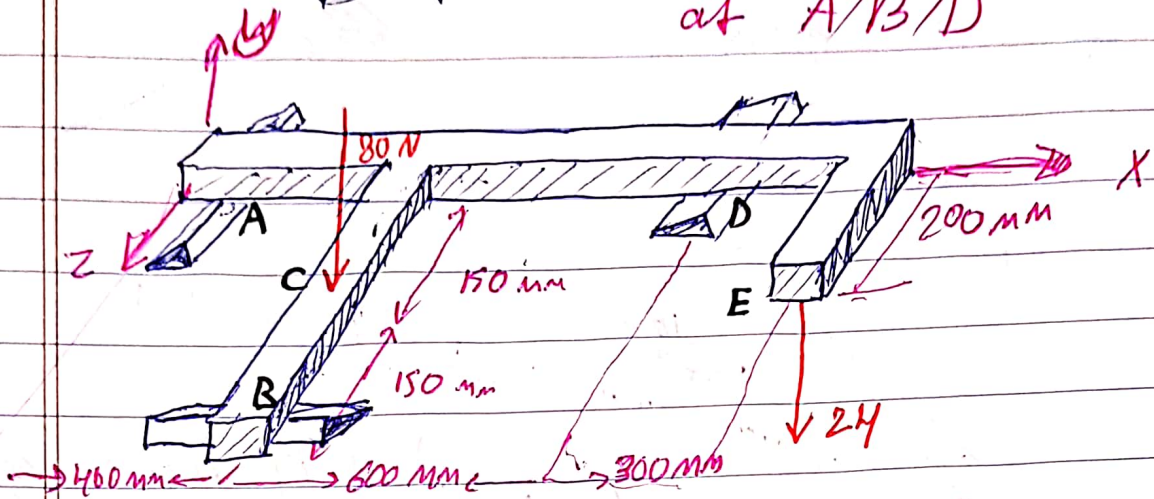 at A/B/D
y
80 N
X
A
D
200 mm
Z
C
150 mm
E
B
150 mm
24
400 mm 600 mm 300 mm